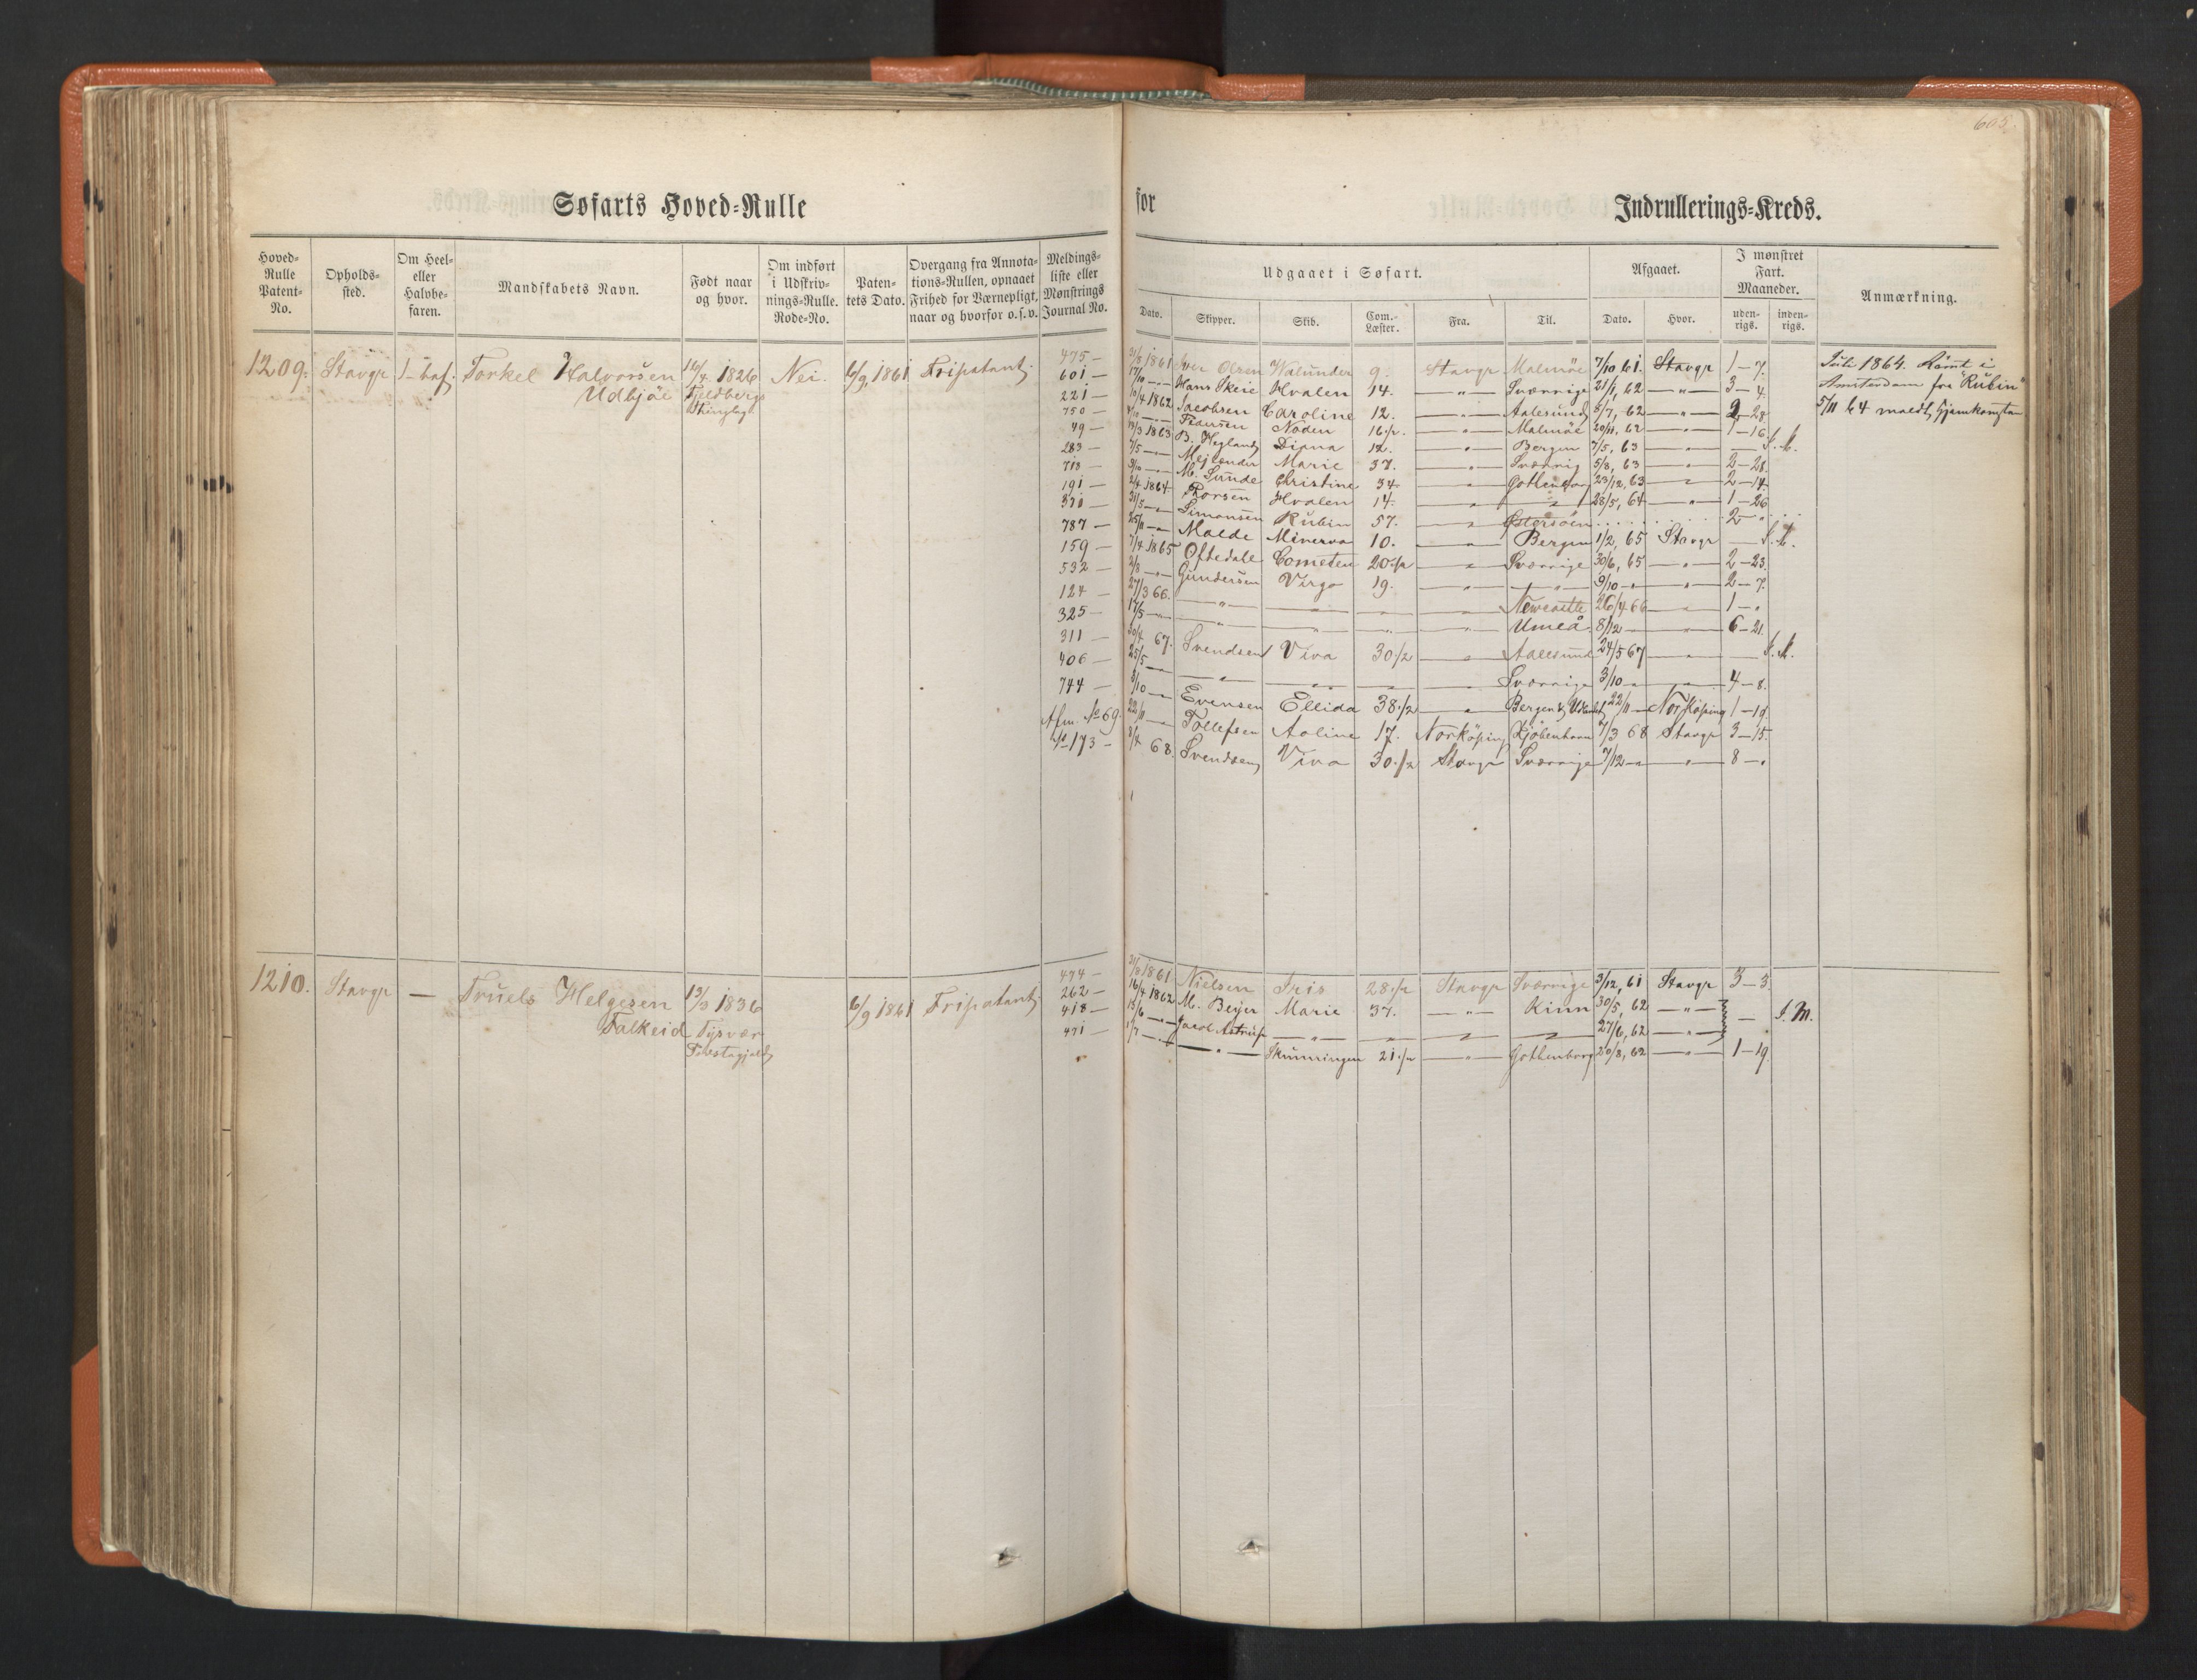 605.
Søfarts Hoved-Rulle for Indrullerings-Kreds.
Hoved-Rulle Patent-No. Opholds-sted. Om Heel- eller Halvbe-faren. Mandskabets Navn. Født naar og hvor. Om indført i Udskriv-nings-Rulle. Rode-No. Paten-tets Dato. Overgang fra Annota-tions-Rullen, opnaaet Frihed for Værnepligt, naar og hvorfor o.s.v. Meldings-liste eller Mønstrings Journal No.
Udgaaet i Søfart. Afgaaet. I mønstret Fart. Maaneder. Anmærkning.
Dato. Skipper. Skib. Com.-Læster. Fra. Til. Dato. Hvor. uden-rigs. inden-rigs.
1209. Stavgr 1-baf. Torkel Halvorsen 16/4 1826 Nei. 6/9 1861 Fripatent.
Udbjöe
475 — 31/8 1861 Iver Olsen Walunder 9. Stavgr Malmöe 7/10 61. Stavgr 1-7.
601 — 17/10 — Hans Skeie Hvalen 14. — " — Sværrige 21/1, 62 — " — 3-4.
221 — 10/4 1862 Jacobsen Caroline 12. — " — Aalesund 8/7, 62 — " — 2-28.
750 — Pedersen Noden 16 1/2. — " — Malmöe 20/11, 62 — " — 1-16.
49 — 19/3 1863 B. Heglands Diana 12. — " — Bergen 7/5, 63 — " — I.M.
283 — 7/5 — Mejlænder Marie 37. — " — Sværrig 5/8, 63 — " — 2-28.
713 — 9/10 — M. Sunde Christine 34. — " — Gothenborg 23/12, 63 — " — 2-14.
191 — 2/4 1864 Thorsen Hvalen 14. — " — " 28/5, 64 — " — 1-26.
370 — 31/5 — Simonsen Rubin 57. — " — Østersöen 2 "
787 — 25/11 — Malde Minerva 10. — " — Bergen 1/2, 65 Stavgr — I.M.
159 — 7/4 1865 Oftedahl Cometen 20 1/2 — " — Sværrige 30/6, 65 — " — 2-23.
532 — 2/8 — Gundersen Virgo 19. — " — " 9/10 — " — 2-7.
124 — 27/3 66. — " — — " — Newcastle 26/4 66 — " — 1-"
325 — 17/5 — " — — " — Umeå 8/12 — " — 6-21.
311 — 30/4 67. Svendsen Viva 30 1/2 — " — Aalesund 24/5 67 — " — I.M.
406 — 25/5 — " — — " — Sværrige 3/10 — " — 4-8.
744 — 8/10 — Evensen Ellida 38 1/2 — " — Bergen & Udlandet 22/11 — Norköping 1-19.
Afm. No 69. 22/11 — Tollefsen Aoline 17. Norköping Kjöbenhavn 7/3 68 Stavgr 3-15.
No 173 — 8/4 68. Svendsen Viva 30 1/2 Stavgr Sværrige 7/12 — " — 8-"
Juli 1864. Römt i
Amsterdam fra "Rubin"
5/11 64 meldt hjemkommen
1210. Stavgr — Truels Helgesen 13/3 1836 6/9 1861 Fripatent
Falkeid Tysvær
474 — 31/8 1861 Nielsen Iris 28 1/2 Stavgr Sværrige 3/12, 61 Stavgr 3-3.
262 — 16/4 1862 M. Beyer Marie 37. — " — Kinn 30/5, 62 — " — I.M.
418 — 18/6 — — " — — " — 27/6, 62 — " —
471 — 1/7 — — " — Skumringen 21 1/2 — " — Gothenborg 20/8, 62 — " — 1-19.